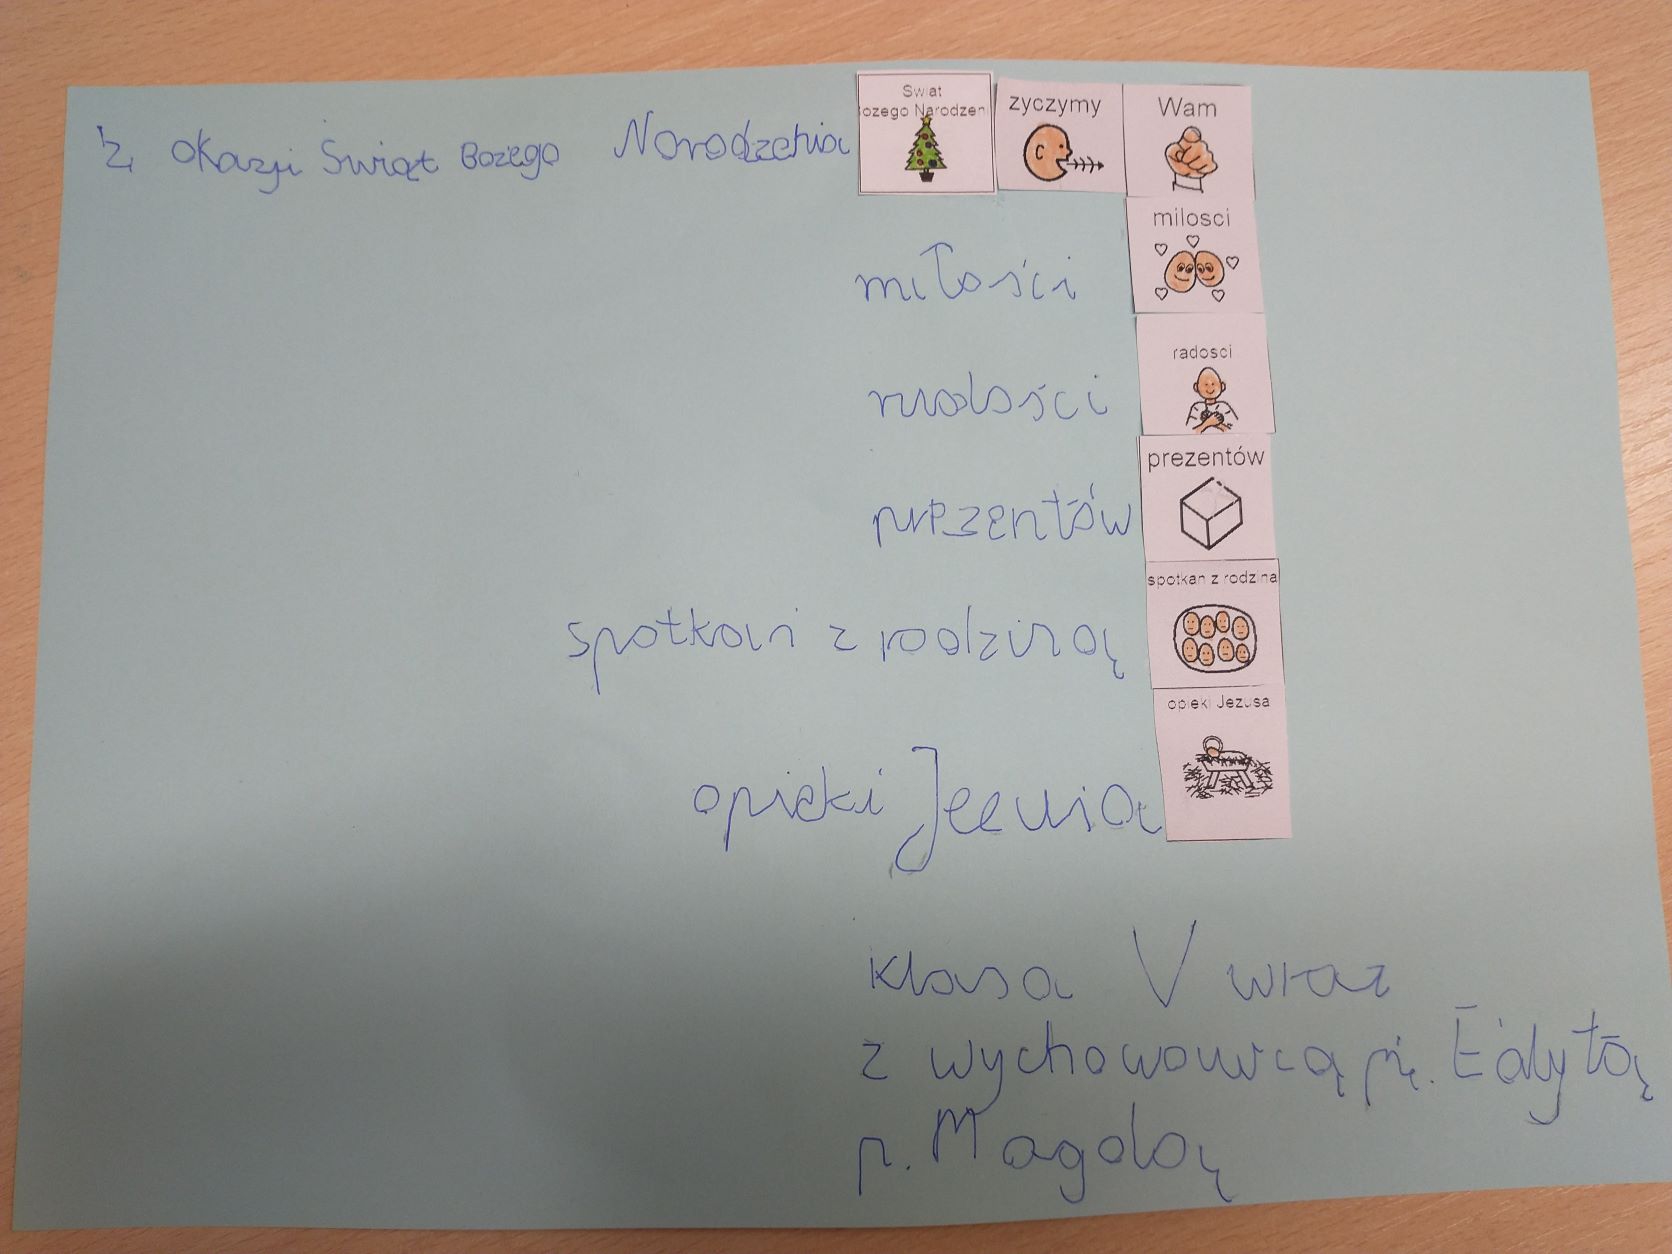 Z okazji Świąt Bożego Narodzenia
Swiat
ozego Narodzen
zyczymy
Wam
milosci
miłości
radosci
radości
prezentów
prezentów
spotkan z rodzina
spotkań z rodziną
opieki Jezusa
opieki
klasa V wraz
z wychowawcą p. Edytą
p. Magdą